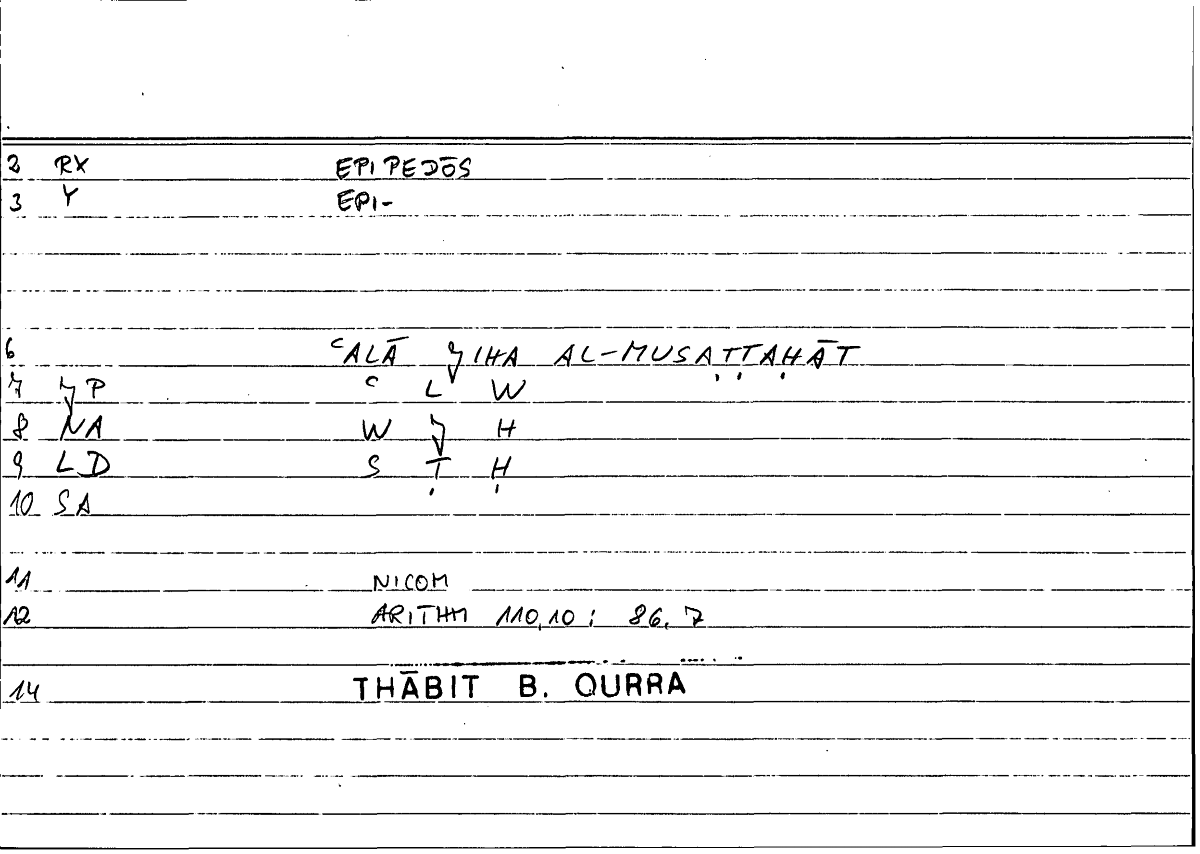 2 RX EPIPEDŌS
3 Y EPI-
6 ʿALĀ ǦIHA AL-MUSAṬṬAḤĀT
7 ǦP ʿ L W
8 NA W Ǧ H
9 LD S Ṭ Ḥ
10 SA
11 NICOM
12 ARITHM 110,10 : 86,7
14 THĀBIT B. QURRA